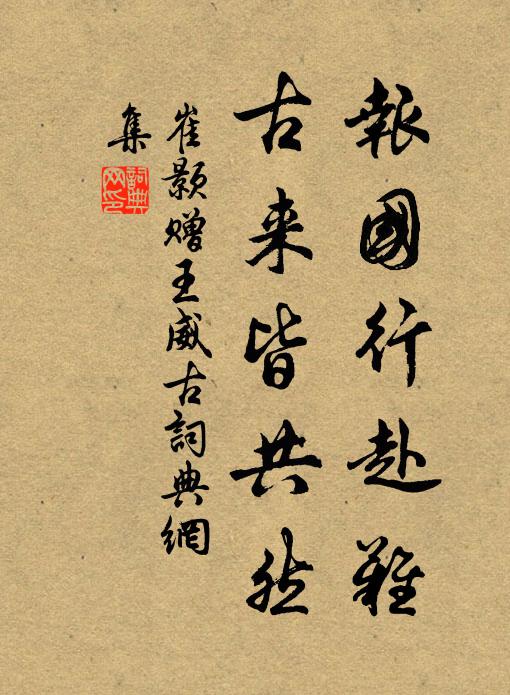 報國行赴難
古来皆共然
崔颢赠王威古詞典網
集
詞典網印